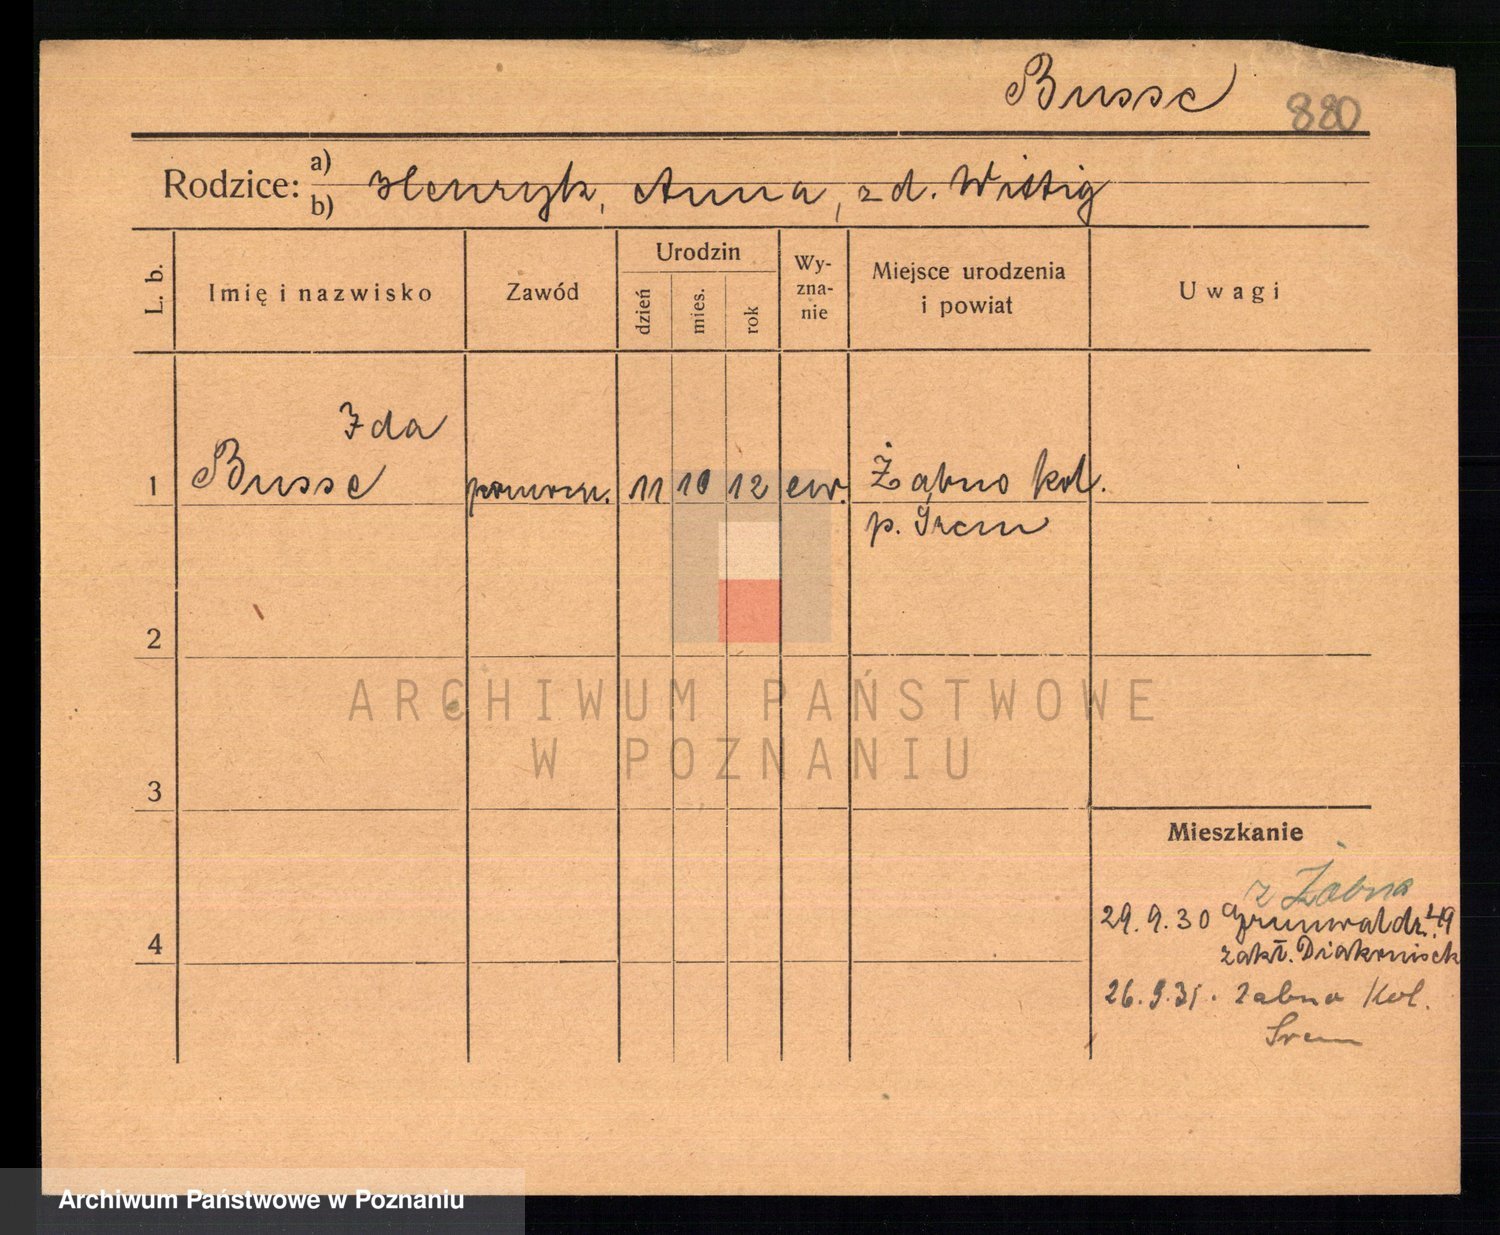 Busse 880
Rodzice: a) b) Henryk, Anna, z d. Wittig
L. b. Imię i nazwisko Zawód Urodzin dzień mies. rok Wy-zna-nie Miejsce urodzenia i powiat Uwagi
Ida
1 Busse 11 10 12 ew. Żabno kol.
p. Śrem
2
ARCHIWUM PAŃSTWOWE
W POZNANIU
3
Mieszkanie
z Żabna
29.9.30 Grunwaldz. 49
4 zakł. Diakonisek
26.9.31. Zabno Kol.
Srem
Archiwum Państwowe w Poznaniu